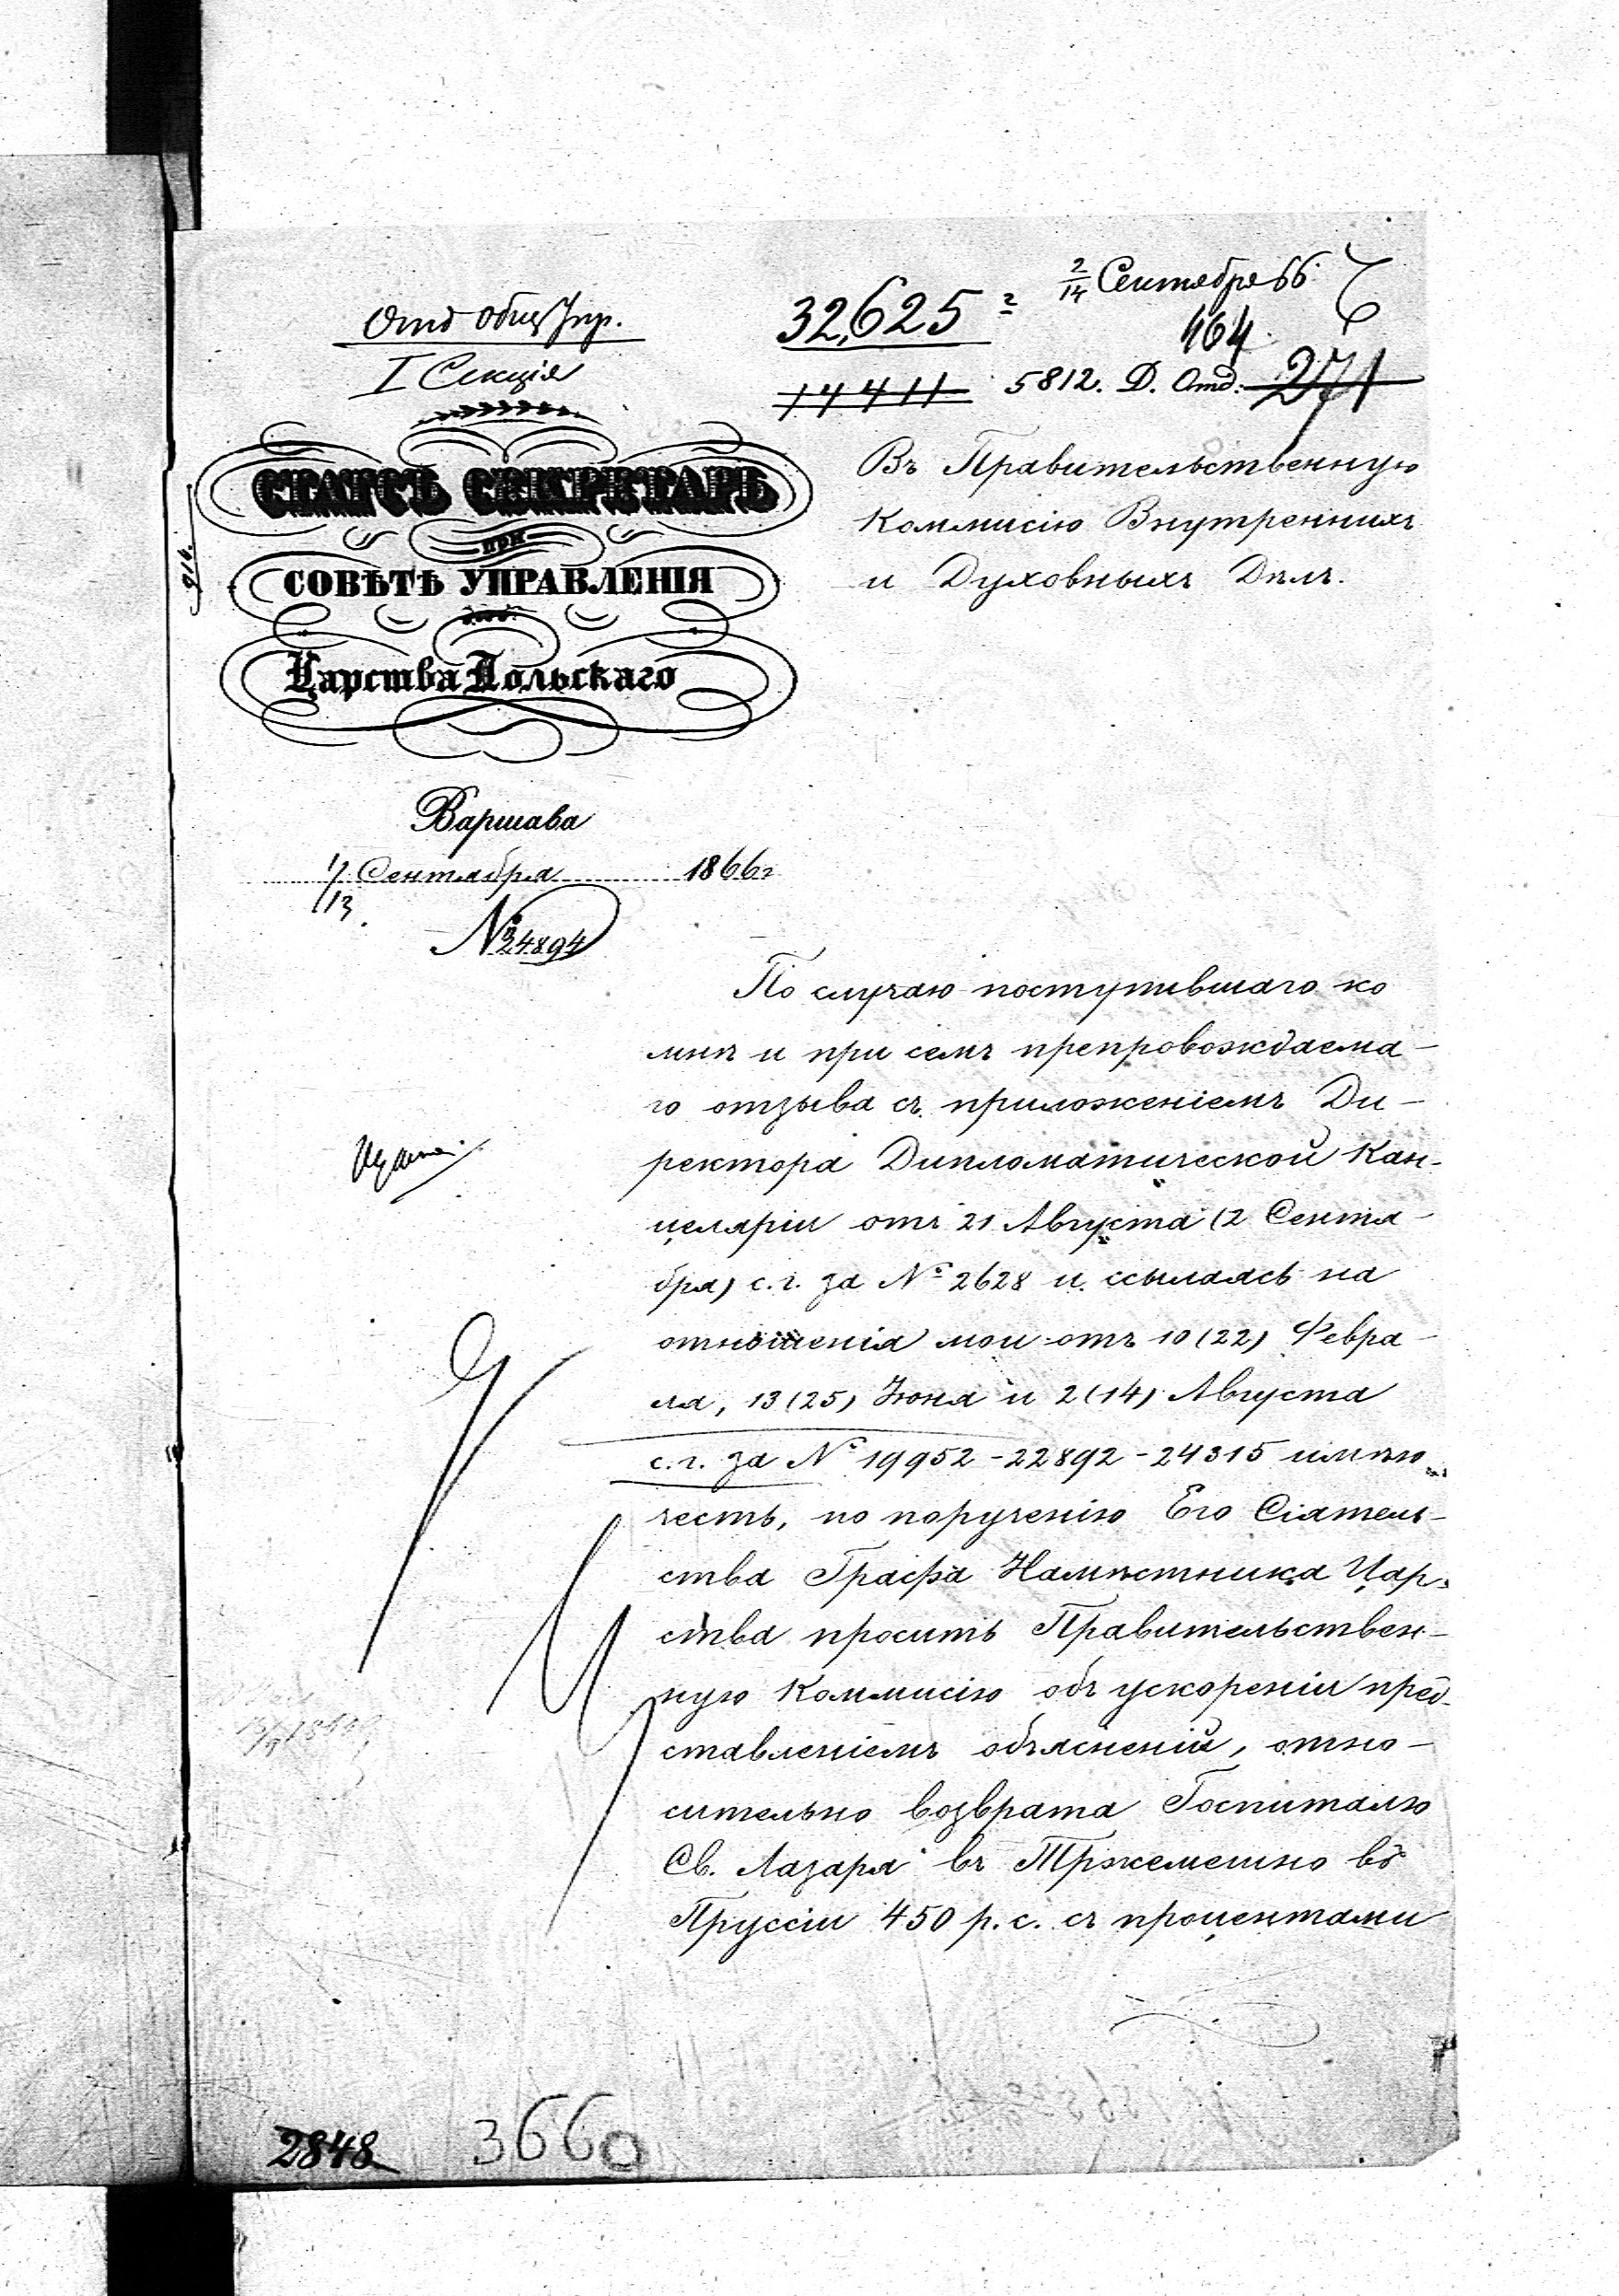 Отд общ Упр.
I Секція
32,625
2/14 Сентября 66
464
14411
5812. Д. Отд. 271
СТАТСЪ СЕКРЕТАРЬ
ПРИ
СОВѢТѢ УПРАВЛЕНІЯ
Царства Польскаго
Въ Правительственную
Коммисію Внутреннихъ
и Духовныхъ Дѣлъ.
Варшава
1/13 Сентября 1866г
№ 24894
По случаю поступившаго ко
мнѣ и при семъ препровождаема-
го отзыва съ приложеніемъ Ди-
ректора Дипломатической Кан-
целяріи отъ 21 Августа (2 Сентя-
бря) с. г. за № 2628 и ссылаясь на
отношенія мои отъ 10 (22) Февра-
ля, 13 (25) Іюня и 2 (14) Августа
с. г. за № 19952 - 22892 - 24315 имѣю
честь, по порученію Его Сіятель-
ства Графа Намѣстника Цар-
ства просить Правительствен-
ную Коммисію объ ускореніи пред-
ставленіемъ объясненій, отно-
сительно возврата Госпиталю
Св. Лазаря въ Тржемешно въ
Пруссіи 450 р. с. съ процентами
2848
3660